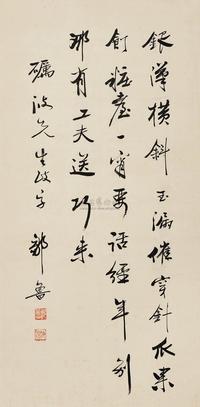 銀漢橫斜玉漏催穿針瓜果
飣粧臺一宵要話經年別
那有工夫送巧來
礪波先生改字
鄒魯